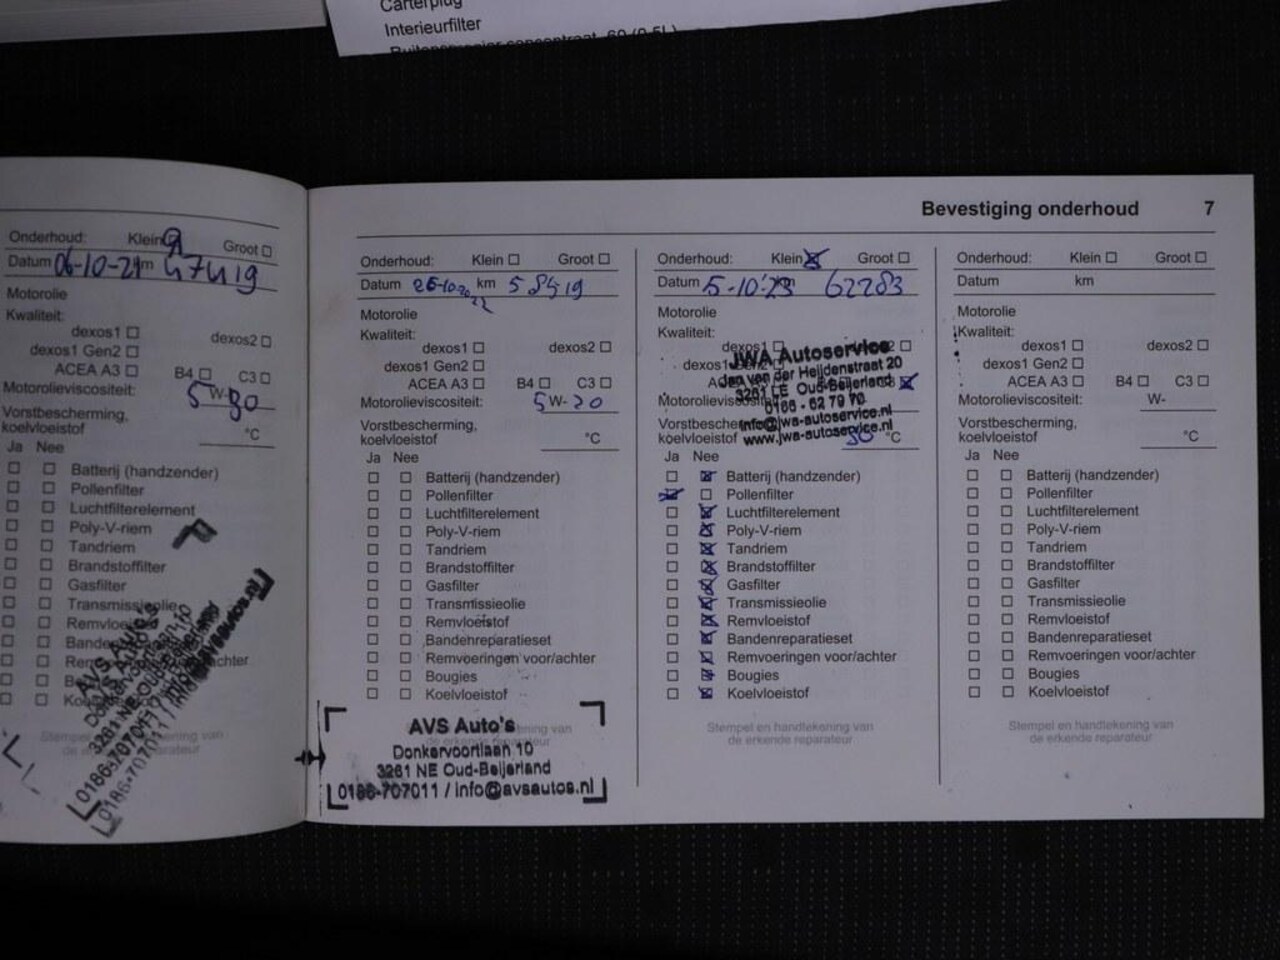 Carterplug
Interieurfilter
Bevestiging onderhoud 7
Onderhoud: Klein Groot
Datum 06-10-21 km 47419
Motorolie
Kwaliteit:
dexos1 dexos2
dexos1 Gen2
ACEA A3 B4 C3
Motorolieviscositeit: 5W-30
Vorstbescherming,
koelvloeistof °C
Ja Nee
Batterij (handzender)
Pollenfilter
Luchtfilterelement
Poly-V-riem
Tandriem
Brandstoffilter
Gasfilter
Transmissieolie
AVS Auto's
3261 NE Oud-Beijerland
0186-707011 / info@avsautos.nl
Onderhoud: Klein Groot
Datum 26-10-2022 km 58419
Motorolie
Kwaliteit:
dexos1 dexos2
dexos1 Gen2
ACEA A3 B4 C3
Motorolieviscositeit: 5W-20
Vorstbescherming,
koelvloeistof °C
Ja Nee
Batterij (handzender)
Pollenfilter
Luchtfilterelement
Poly-V-riem
Tandriem
Brandstoffilter
Gasfilter
Transmissieolie
Remvloeistof
Bandenreparatieset
Remvoeringen voor/achter
Bougies
Koelvloeistof
AVS Auto's
Donkervoortlaan 10
3261 NE Oud-Beijerland
0186-707011 / info@avsautos.nl
Onderhoud: Klein Groot
Datum 5-10-'23 62283
Motorolie
Kwaliteit:
dexos1
JWA Autoservice
Jan van der Heijdenstraat 20
3261 LE Oud-Beijerland
0186 - 62 79 70
info@jwa-autoservice.nl
www.jwa-autoservice.nl
koelvloeistof 30 °C
Ja Nee
Batterij (handzender)
Pollenfilter
Luchtfilterelement
Poly-V-riem
Tandriem
Brandstoffilter
Gasfilter
Transmissieolie
Remvloeistof
Bandenreparatieset
Remvoeringen voor/achter
Bougies
Koelvloeistof
Stempel en handtekening van
de erkende reparateur
Onderhoud: Klein Groot
Datum km
Motorolie
Kwaliteit:
dexos1 dexos2
dexos1 Gen2
ACEA A3 B4 C3
Motorolieviscositeit: W-
Vorstbescherming,
koelvloeistof °C
Ja Nee
Batterij (handzender)
Pollenfilter
Luchtfilterelement
Poly-V-riem
Tandriem
Brandstoffilter
Gasfilter
Transmissieolie
Remvloeistof
Bandenreparatieset
Remvoeringen voor/achter
Bougies
Koelvloeistof
Stempel en handtekening van
de erkende reparateur